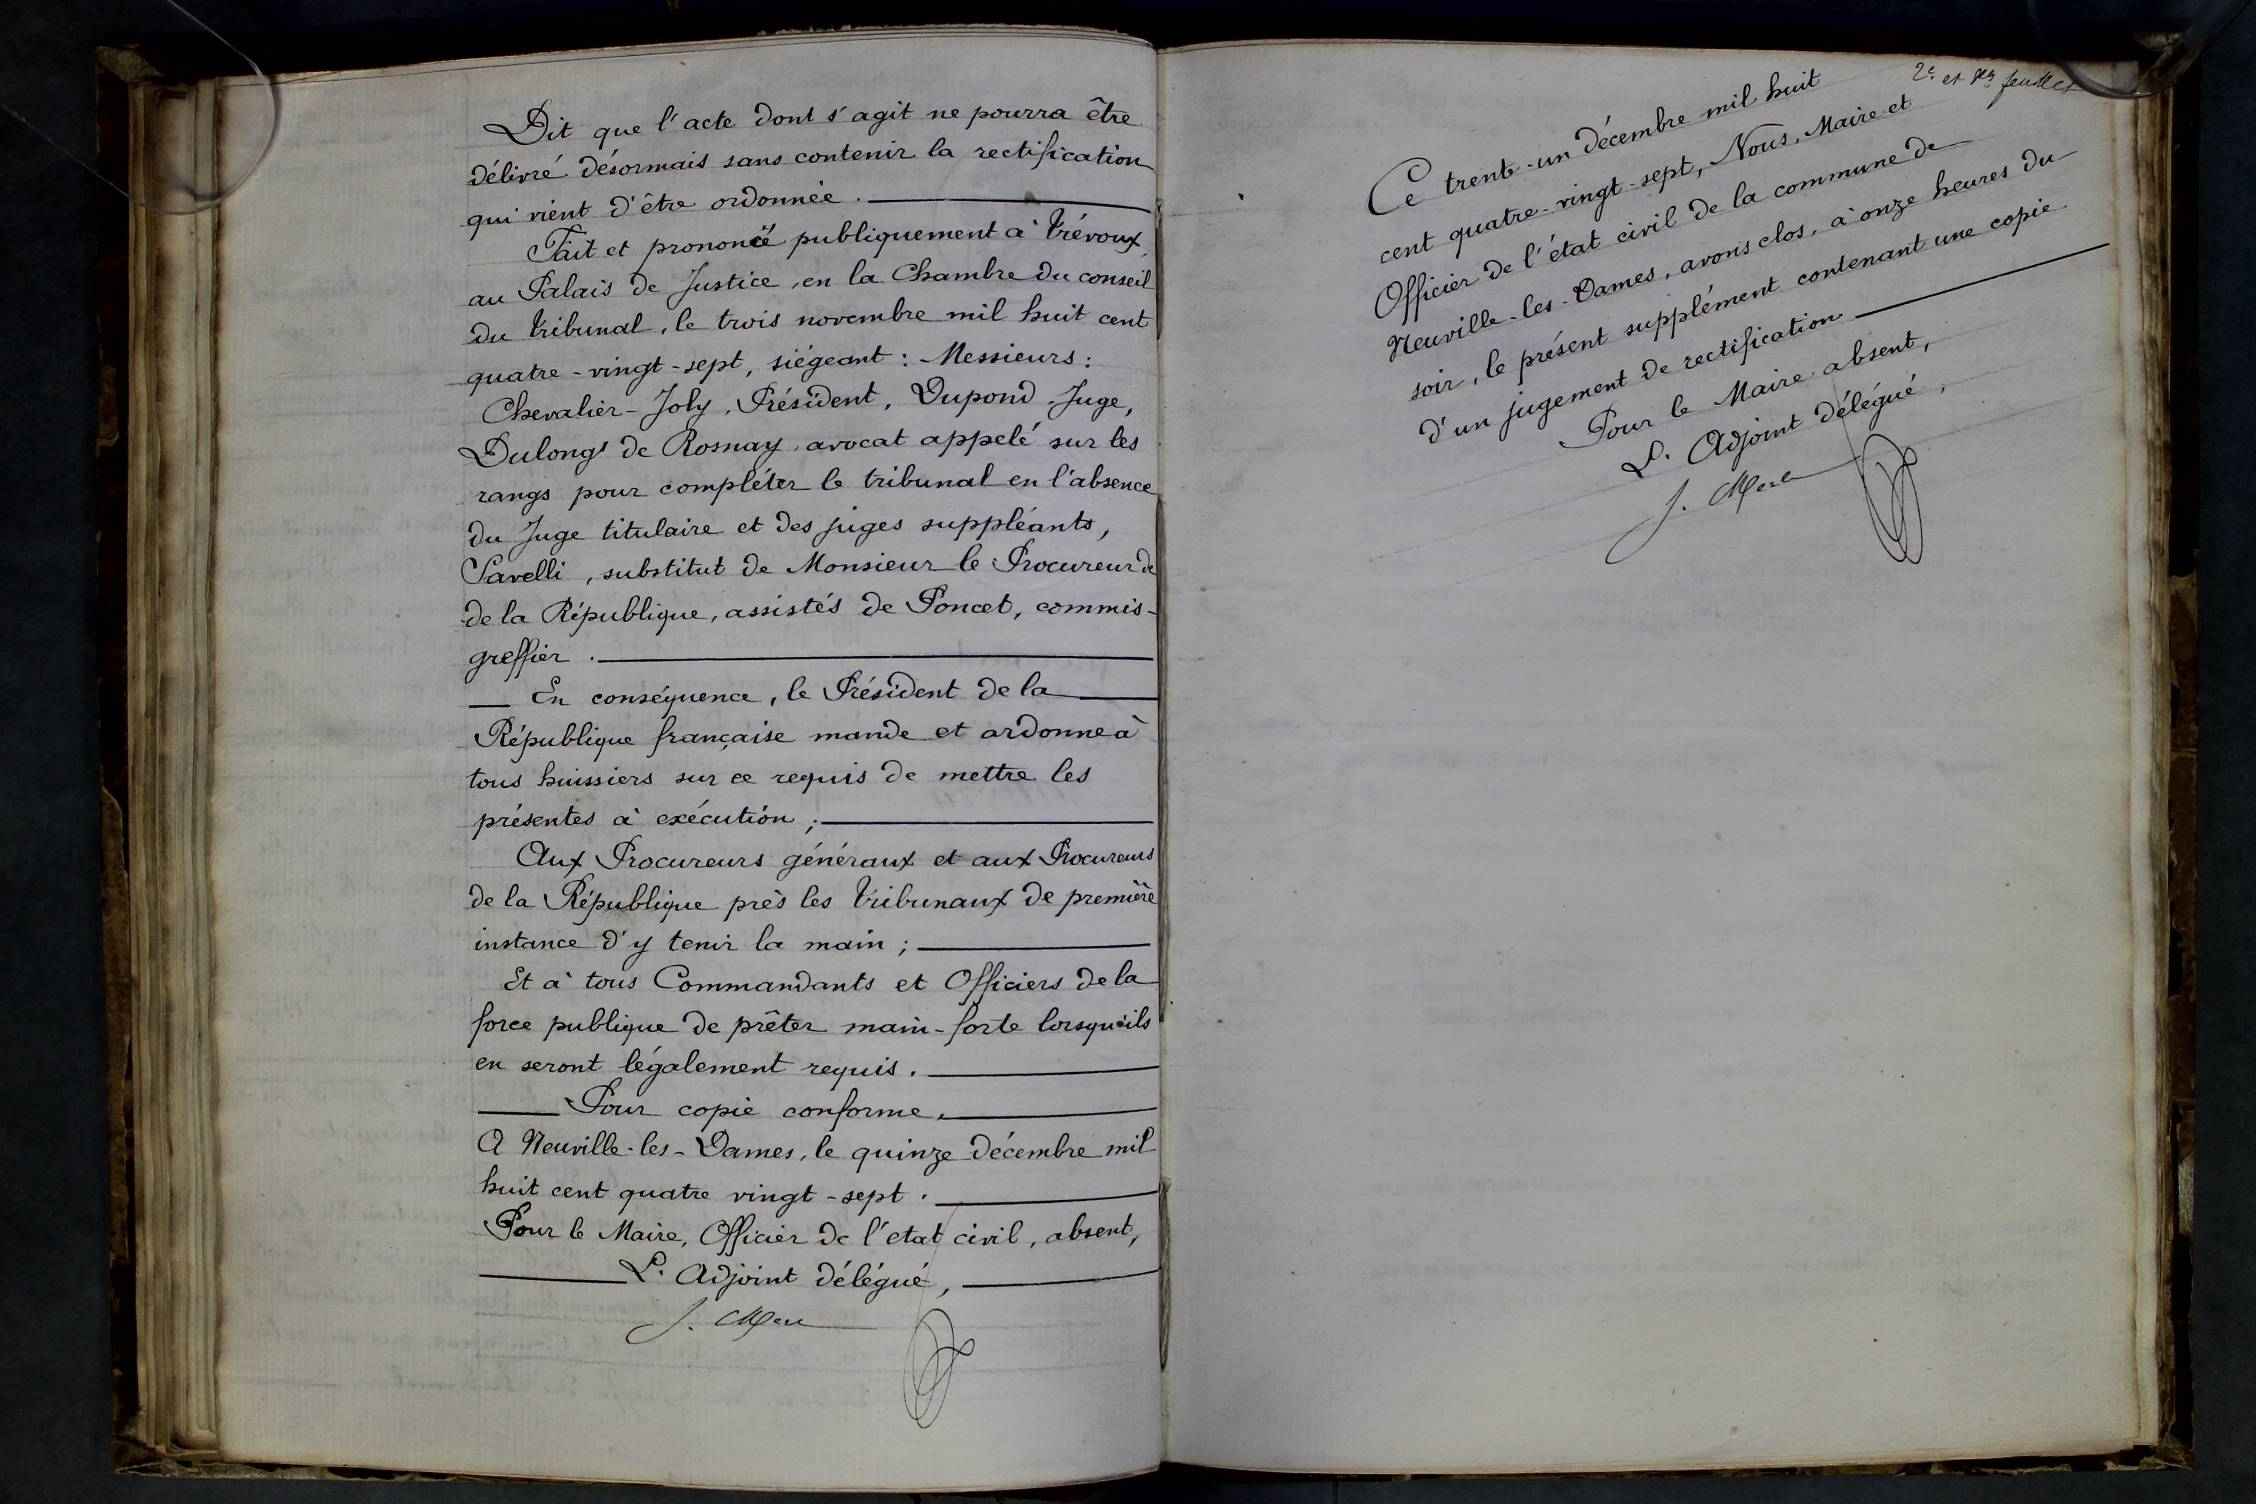 Dit que l'acte dont s'agit ne pourra être
délivré désormais sans contenir la rectification
qui vient d'être ordonnée.
Fait et prononcé publiquement à Trévoux,
au Palais de Justice, en la Chambre du conseil
du Tribunal, le trois novembre mil huit cent
quatre-vingt-sept, siégeant : Messieurs :
Chevalier-Joly, Président, Dupond Juge,
Dulong de Rosnay avocat appelé sur les
rangs pour compléter le tribunal en l'absence
du Juge titulaire et des juges suppléants,
Savelli, substitut de Monsieur le Procureur de
de la République, assistés de Poncet, commis-
greffier.
En conséquence, le Président de la
République française mande et ordonne à
tous huissiers sur ce requis de mettre les
présentes à exécution ;
Aux Procureurs généraux et aux Procureurs
de la République près les Tribunaux de première
instance d'y tenir la main ;
Et à tous Commandants et Officiers de la
force publique de prêter main-forte lorsqu'ils
en seront légalement requis.
Pour copie conforme.
A Neuville-les-Dames, le quinze décembre mil
huit cent quatre vingt-sept.
Pour le Maire, Officier de l'etat civil, absent,
L'Adjoint délégué,
2e et feuillet
Ce trente-un décembre mil huit
cent quatre-vingt-sept, Nous, Maire et
Officier de l'état civil de la commune de
Neuville-les-Dames, avons clos, à onze heures du
soir, le présent supplément contenant une copie
d'un jugement de rectification
Pour le Maire absent,
L'Adjoint délégué,